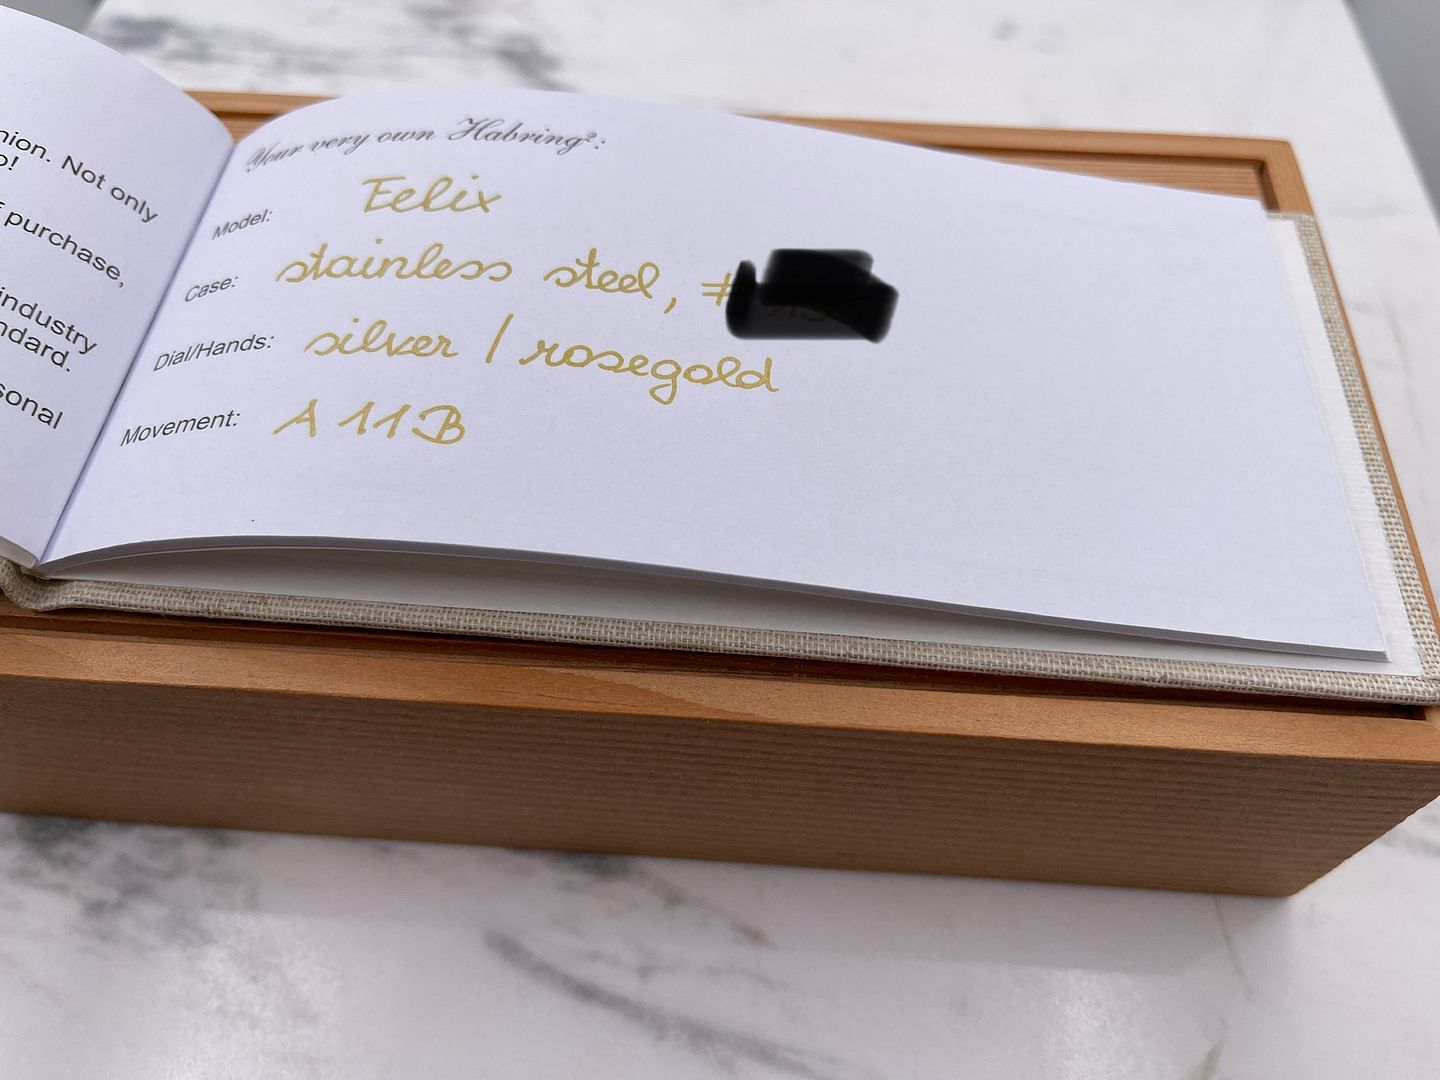 nion. Not only
o!
purchase,
industry
ndard.
sonal
Your very own Habring²:
Model: Felix
Case: stainless steel, #
Dial/Hands: silver / rosegold
Movement: A11B